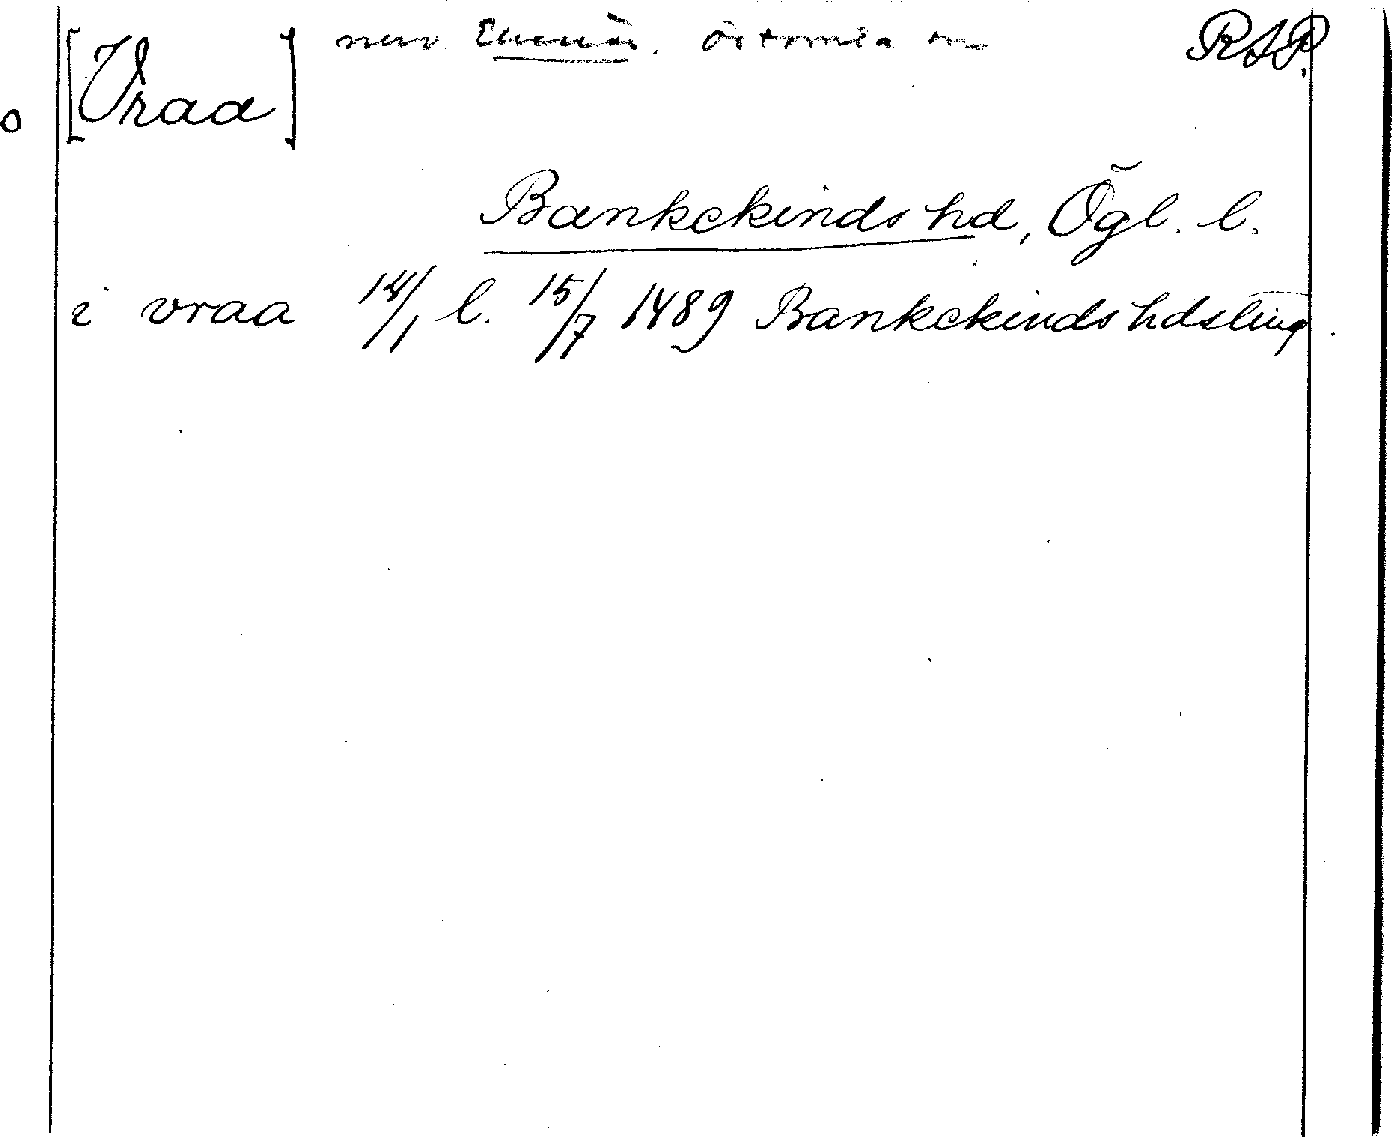 [Vraa] RAP.
o
Bankekinds hd, Ögl. l.
i vraa 14/1 l. 15/7 1489 Bankekinds hdsting.